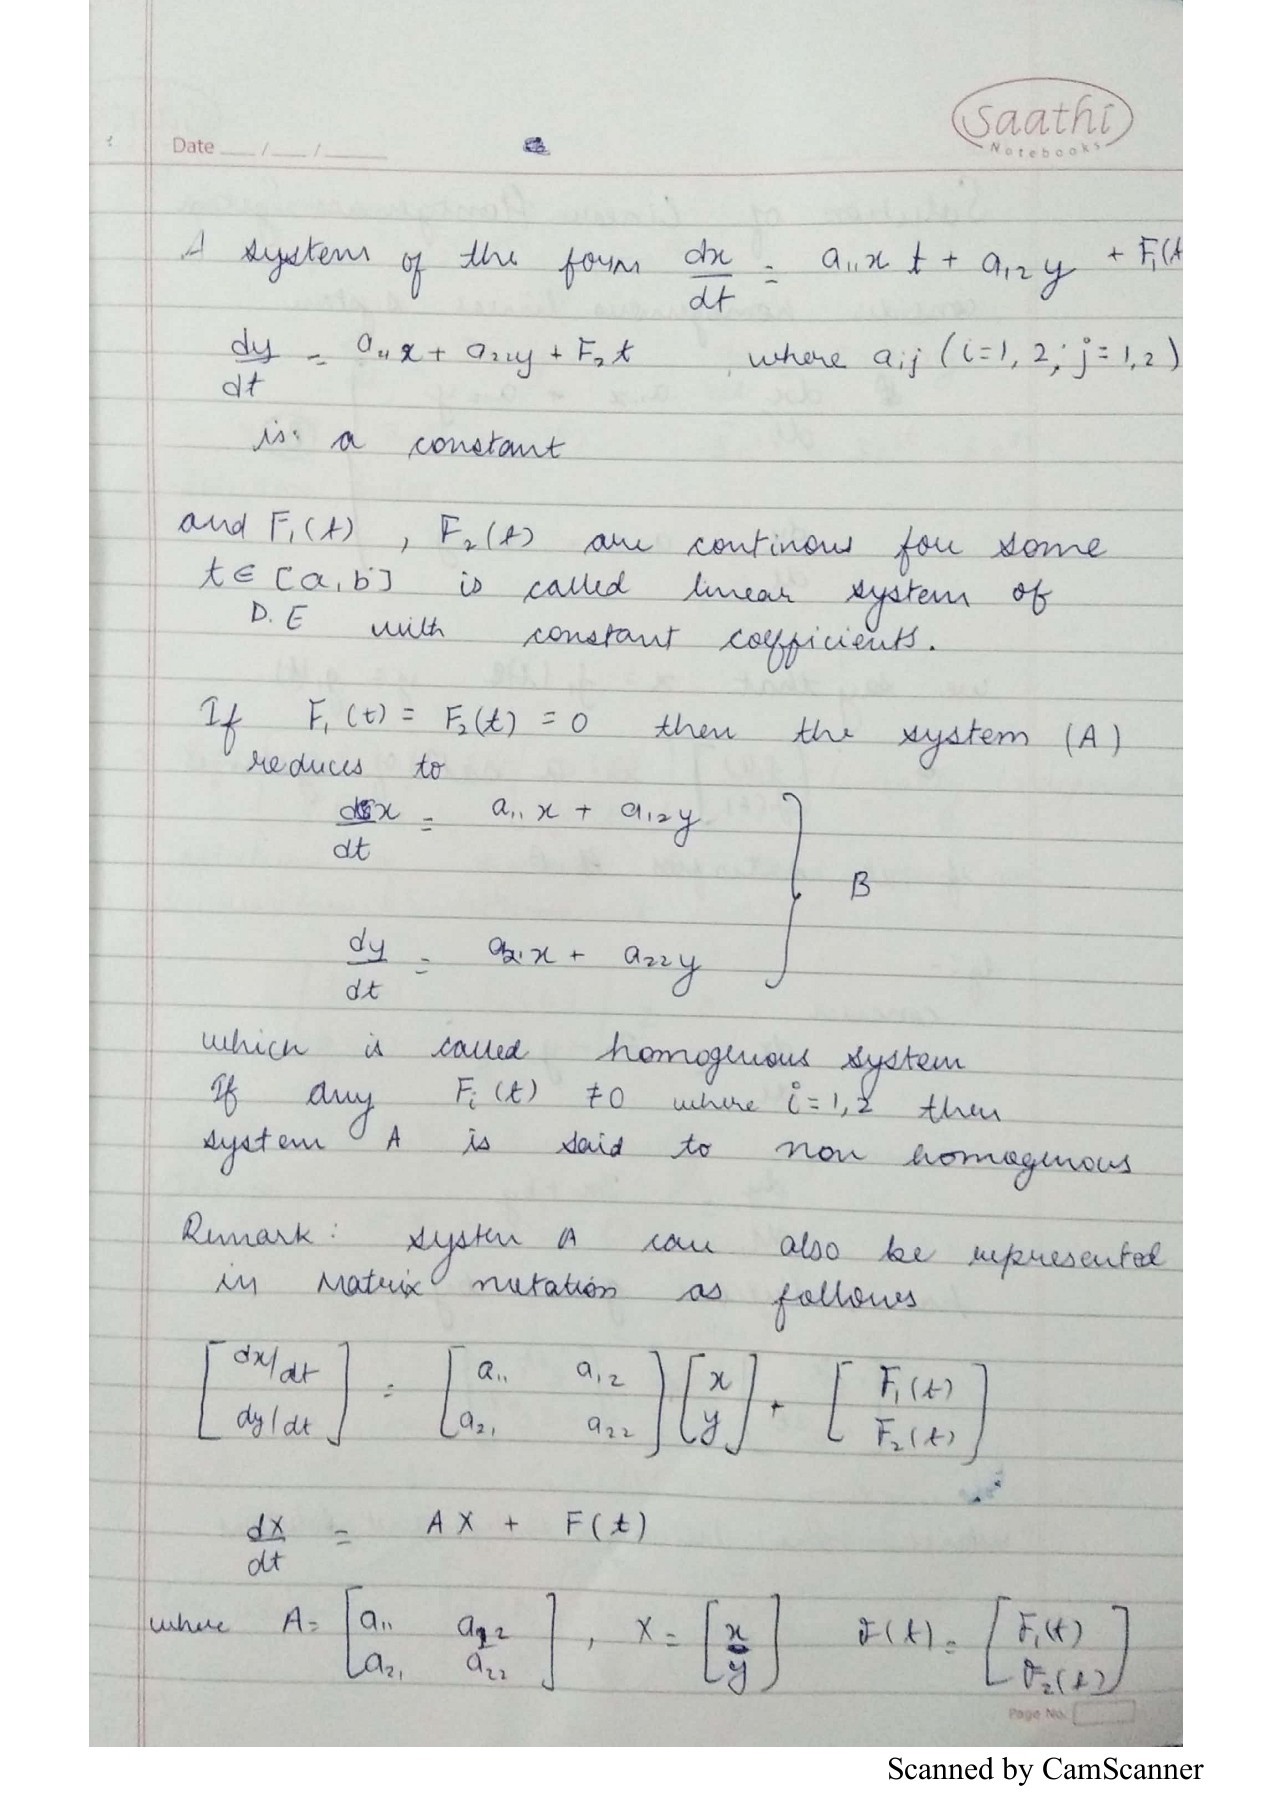 Saathi
Notebooks
Date __/__/____
A system of the form dx/dt = a₁₁x t + a₁₂y + F₁(t
dy/dt = a₁₁x + a₂₂y + F₂t where aij (i=1, 2; j=1,2)
is a constant
and F₁(t) , F₂(t) are continous for some
t ∈ [a,b] is called linear system of
D.E with constant coefficients.
If F₁(t) = F₂(t) = 0 then the system (A)
reduces to
dx/dt = a₁₁x + a₁₂y
B
dy/dt = a₂₁x + a₂₂y
which is called homogenous system
If any Fi(t) ≠0 where i=1,2 then
system A is said to non homogenous
Remark: system A can also be represented
in Matrix notation as follows
[dx/dt dy/dt] = [a₁₁ a₁₂ a₂₁ a₂₂] [x y] + [F₁(t) F₂(t)]
dX/dt = AX + F(t)
where A= [a₁₁ a₁₂ a₂₁ a₂₂] , X = [x y] F(t) = [F₁(t) F₂(t)]
Page No.
Scanned by CamScanner